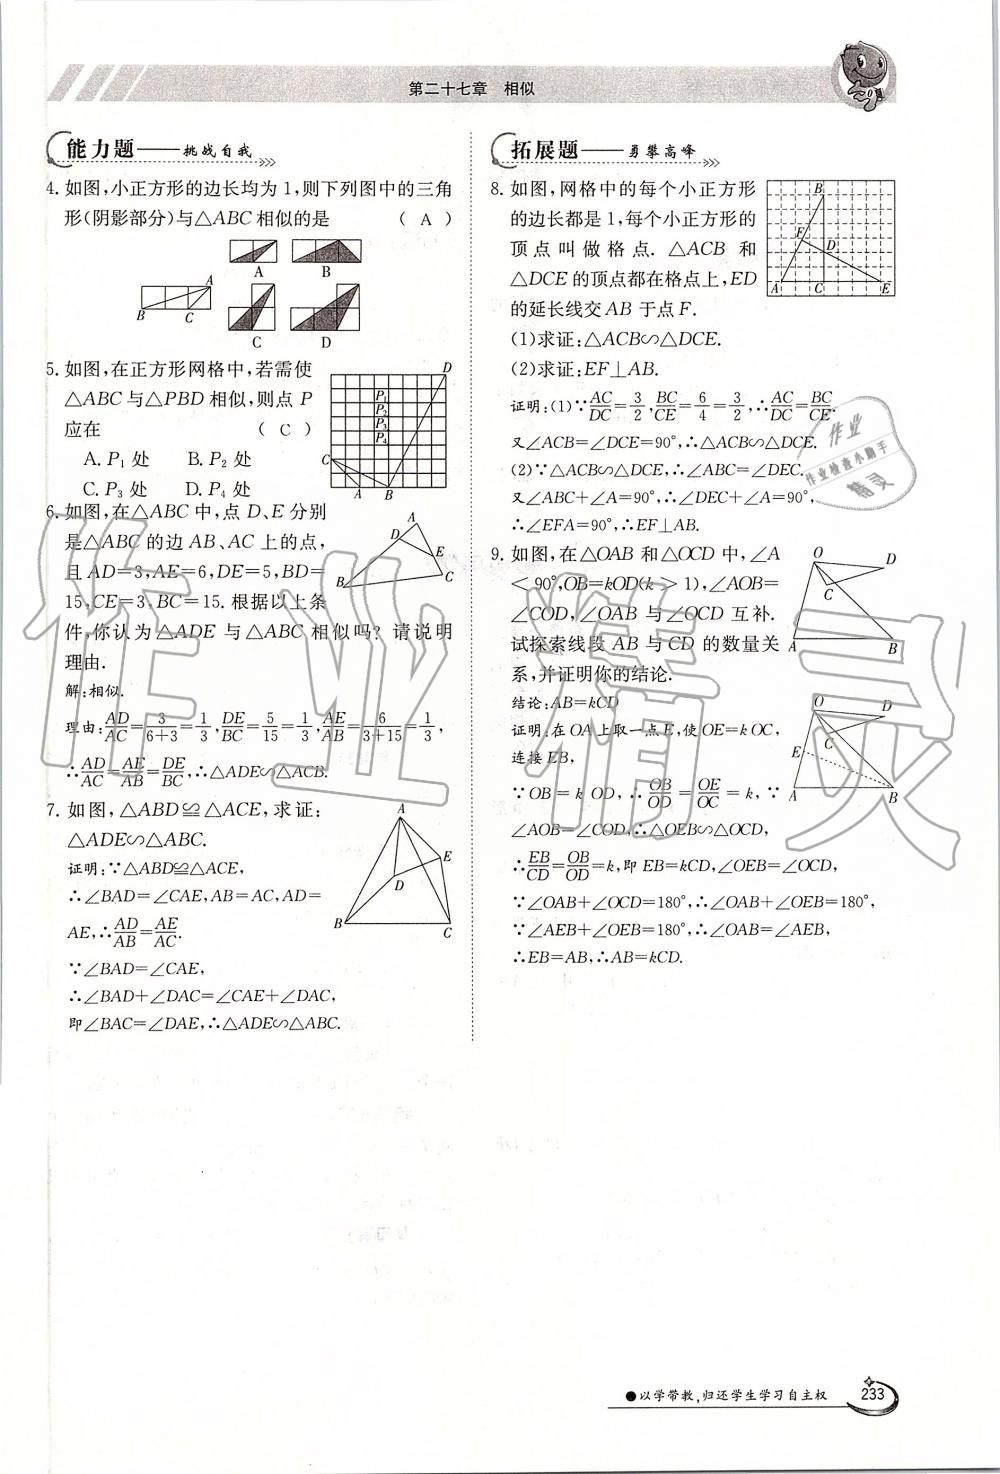 第二十七章　相似
能力题——挑战自我
4. 如图,小正方形的边长均为1,则下列图中的三角
形(阴影部分)与△ABC相似的是　（ A ）
A　B
A　B　C
C　D
5. 如图,在正方形网格中,若需使
△ABC与△PBD相似,则点P
应在　（ C ）
A. P₁处　B. P₂处
C. P₃处　D. P₄处
D　P₁　P₂　P₃　P₄　C　A　B
6. 如图,在△ABC中,点D、E分别
是△ABC的边AB、AC上的点,
且AD=3,AE=6,DE=5,BD=
15,CE=3,BC=15. 根据以上条
件,你认为△ADE与△ABC相似吗? 请说明
理由.
A　D　E　B　C
解:相似.
理由:AD/AC=3/(6+3)=1/3,DE/BC=5/15=1/3,AE/AB=6/(3+15)=1/3,
∴AD/AC=AE/AB=DE/BC,∴△ADE∽△ACB.
7. 如图,△ABD≌△ACE,求证:
△ADE∽△ABC.
A　E　D　B　C
证明:∵△ABD≌△ACE,
∴∠BAD=∠CAE,AB=AC,AD=
AE,∴AD/AB=AE/AC.
∵∠BAD=∠CAE,
∴∠BAD+∠DAC=∠CAE+∠DAC,
即∠BAC=∠DAE,∴△ADE∽△ABC.
拓展题——勇攀高峰
8. 如图,网格中的每个小正方形
的边长都是1,每个小正方形的
顶点叫做格点. △ACB和
△DCE的顶点都在格点上,ED
的延长线交AB于点F.
B　F　D　A　C　E
(1)求证:△ACB∽△DCE.
(2)求证:EF⊥AB.
证明:(1)∵AC/DC=3/2,BC/CE=6/4=3/2,∴AC/DC=BC/CE.
又∠ACB=∠DCE=90°,∴△ACB∽△DCE.
(2)∵△ACB∽△DCE,∴∠ABC=∠DEC.
又∠ABC+∠A=90°,∴∠DEC+∠A=90°,
∴∠EFA=90°,∴EF⊥AB.
9. 如图,在△OAB和△OCD中,∠A
<90°,OB=kOD(k>1),∠AOB=
∠COD,∠OAB与∠OCD互补.
试探索线段AB与CD的数量关
系,并证明你的结论.
O　D　C　A　B
结论:AB=kCD
证明:在OA上取一点E,使OE=kOC,
连接EB,
O　D　C　E　A　B
∵OB=k OD,∴OB/OD=OE/OC=k,∵
∠AOB=∠COD,∴△OEB∽△OCD,
∴EB/CD=OB/OD=k,即EB=kCD,∠OEB=∠OCD,
∵∠OAB+∠OCD=180°,∴∠OAB+∠OEB=180°,
∵∠AEB+∠OEB=180°,∴∠OAB=∠AEB,
∴EB=AB,∴AB=kCD.
作业精灵
作业
作业检查小助手
精灵
●以学带教,归还学生学习自主权
233